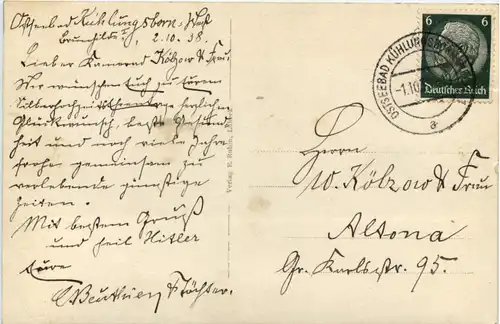 Ostseebad Kühlungsborn-West
Brunshilds 2.10.38.
Lieber Kamerad Kölzow & Frau
Wir wünschen Euch zu Eurem
Silberhochzeits herzlichen
Glückwunsch, beste Gesund-
heit und noch viele Jahre
frohe gemeinsam zu
verlebende günstige
Zeiten.
Mit bestem Gruß
und heil Hitler
Eure
Töchter.
Verlag: R. Rohm,
6 6
Deutsches Reich
OSTSEEBAD KÜHLUNGSBORN
-1.10
a
Herrn
W. Kölzow & Frau
Altona
Gr. Karlstr. 95.